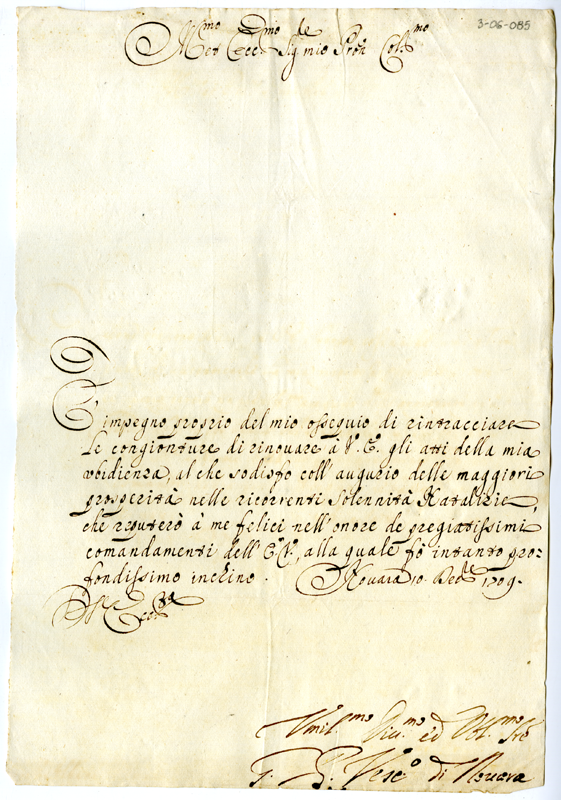 3-06-085
Ill.mo et Ecc.mo Sig.re mio Pron Col.mo
E' impegno proprio del mio ossequio di rintracciare
le congionture di rinouare à V.E. gli atti della mia
vbidienza, al che sodisfo coll' augurio delle maggiori
prosperità nelle ricorrenti solennità Natalizie,
che reputerò à me felici nell' onore de pregiatissimi
comandamenti dell' E.V., alla quale fò intanto pro=
fondissimo inchino. Nouara 10. Dec. 1709.
Di V. Ecc.za
Vmil.mo Diu.mo ed Obl.mo
G. B. Vesc.o di Nouara